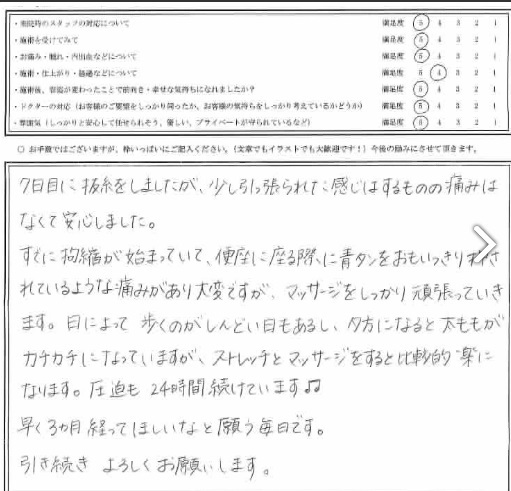 ・来院時のスタッフの対応について 満足度 5 4 3 2 1
・施術を受けてみて 満足度 5 4 3 2 1
・お痛み・腫れ・内出血などについて 満足度 5 4 3 2 1
・施術・仕上がり・経過などについて 満足度 5 4 3 2 1
・施術後、容姿が変わったことで前向き・幸せな気持ちになれましたか? 満足度 5 4 3 2 1
・ドクターの対応(お客様のご要望をしっかり伺ったか、お客様の気持ちをしっかり考えているかどうか) 満足度 5 4 3 2 1
・雰囲気(しっかりと安心して任せられそう、優しい、プライベートが守られているなど) 満足度 5 4 3 2 1
○ お手数ではございますが、枠いっぱいにご記入ください。(文章でもイラストでも大歓迎です!)今後の励みにさせて頂きます。
7日目に抜糸をしましたが、少し引っ張られた感じはするものの痛みは
なくて安心しました。
すでに拘縮が始まっていて、便座に座る際、に青タンをおもいっきり刺さ
れているような痛みがあり大変ですが、マッサージをしっかり頑張っていき
ます。日によって歩くのがしんどい日もあるし、夕方になると太ももが
カチカチになっていますが、ストレッチとマッサージをすると比較的楽に
なります。圧迫も24時間続けています♫
早く3か月経ってほしいなと願う毎日です。
引き続きよろしくお願いします。